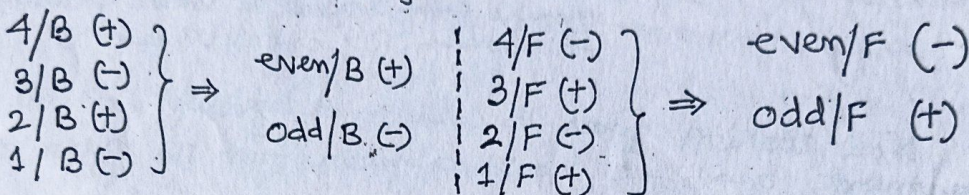 4/B (+)
3/B (-)
2/B (+)
1/B (-)
⇒
even/B (+)
odd/B (-)
4/F (-)
3/F (+)
2/F (-)
1/F (+)
⇒
even/F (-)
odd/F (+)